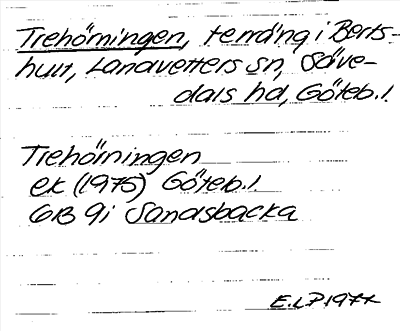 Trehörningen, terräng i Berts-
hult, Landvetters sn, Säve-
dals hd, Göteb.l.
Trehörningen
ek (1975) Göteb.l.
6B 9i Sandsbacka
E.LP 1977